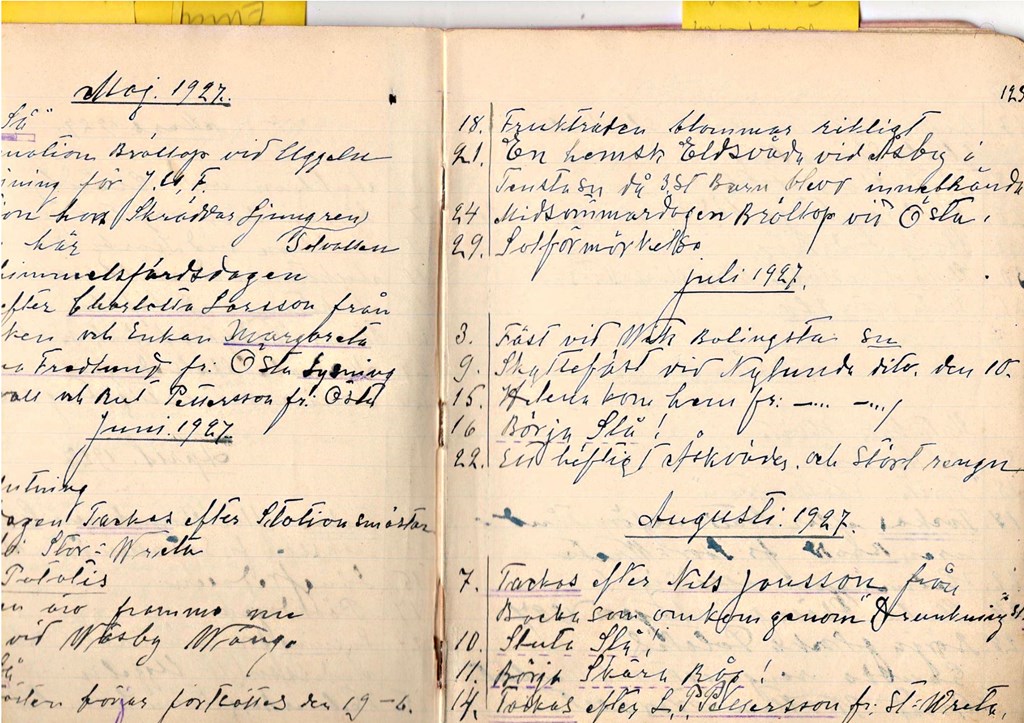 Maj. 1927.
Slå"
Bröllop vid Uggeln
ning för J.U.F.
ion hos Skräddar Ljungren
här
himmelsfärdsdagen
efter Charlotta Larsson från
ken och Enkan Margareta
Fredlund fr. Östa Lysning
och Rut Pettersson fr. Östa
Juni. 1927.
lutning
dagen Tackas efter Stationsmästar
i Stor-Wreta
Potatis
en äro framme nu
vid Wäsby Wänge
Slå
börjar fortsättes den 19-6.
125
18. Fruktträden blommar rikligt
21. En hemsk Eldsvåda vid Åsby i
Tensta sn då 3. St Barn blevo innebrända
24 Midsommardagen Bröllop vid Östa.
29. Solförmörkelse
juli 1927.
3. Fäst vid Wik Balingsta sn
9. Skyttefäst vid Nylunda dito. den 10.
15. Helena kom hem fr: -..- -..-/
16 Börja Slå!
22. Ett häftigt Åskväder. och Stört rengn
Augusti. 1927.
7. Tackas efter Nils Jansson från
Backa som omkom genom "Drunkning"
10. Sluta Slå!
11. Börja Skära Råg!
14. Tackas efter L. P. Pettersson fr: St-Wreta.